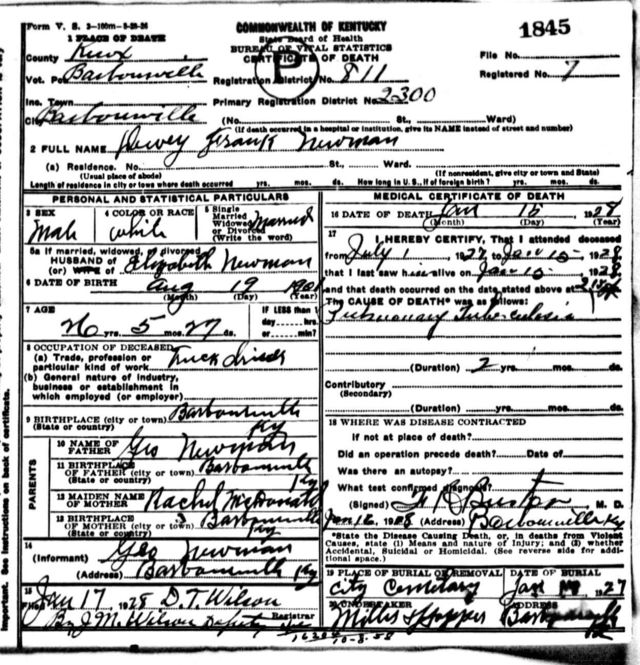 Form V. S. 3-100m-5-28-26
COMMONWEALTH OF KENTUCKY
1845
1 PLACE OF DEATH
State Board of Health
BUREAU OF VITAL STATISTICS
CERTIFICATE OF DEATH
P
County Knox
File No.
Vot. Pct. Barbourville
Registration District No. 811
Registered No. 7
Inc. Town
Primary Registration District No. 2300
City Barbourville (No. St., Ward)
(If death occurred in a hospital or institution, give its NAME instead of street and number)
2 FULL NAME Dewey Frank Newman
(a) Residence. No. St., Ward.
(Usual place of abode) (If nonresident, give city or town and State)
Length of residence in city or town where death occurred yrs. mos. ds. How long in U. S., if of foreign birth? yrs. mos. ds.
PERSONAL AND STATISTICAL PARTICULARS
3 SEX Male
4 COLOR OR RACE White
5 Single Married Widowed or Divorced (Write the word) Married
5a If married, widowed, or divorced
HUSBAND of (or) WIFE of Elizabeth Newman
6 DATE OF BIRTH Aug 19 1901
(Month) (Day) (Year)
7 AGE 26 yrs. 5 mos. 27 ds.
IF LESS than 1 day hrs. or min.
8 OCCUPATION OF DECEASED
(a) Trade, profession or particular kind of work Truck driver
(b) General nature of industry, business or establishment in which employed (or employer)
9 BIRTHPLACE (city or town) Barbourville
(State or country) Ky
PARENTS
10 NAME OF FATHER Geo Newman
11 BIRTHPLACE OF FATHER (city or town) Barbourville
(State or country) Ky
12 MAIDEN NAME OF MOTHER Rachel McDonald
13 BIRTHPLACE OF MOTHER (city or town) Barbourville
(State or country) Ky
14 (Informant) Geo Newman
(Address) Barbourville Ky
15 Filed Jan 17, 1928 D. T. Wilson
Registrar
By J. M. Wilson Deputy
10-8-58
MEDICAL CERTIFICATE OF DEATH
16 DATE OF DEATH Jan 15 1928
(Month) (Day) (Year)
17 I HEREBY CERTIFY, That I attended deceased
from July 1, 1927, to Jan 15, 1928
that I last saw him alive on Jan 15, 1928
and that death occurred on the date stated above at
The CAUSE OF DEATH* was as follows:
Pulmonary Tuberculosis
(Duration) 2 yrs. mos. ds.
Contributory
(Secondary)
(Duration) yrs. mos. ds.
18 WHERE WAS DISEASE CONTRACTED
If not at place of death?
Did an operation precede death? Date of
Was there an autopsy?
What test confirmed diagnosis?
(Signed) M. D.
Jan 16, 1928 (Address) Barbourville Ky
*State the Disease Causing Death, or, in deaths from Violent
Causes, state (1) Means and nature of Injury; and (2) whether
Accidental, Suicidal or Homicidal. (See reverse side for addi-
tional space.)
19 PLACE OF BURIAL OR REMOVAL City Cemetary
DATE OF BURIAL Jan 1927
20 UNDERTAKER
ADDRESS
Important. See instructions on back of certificate.